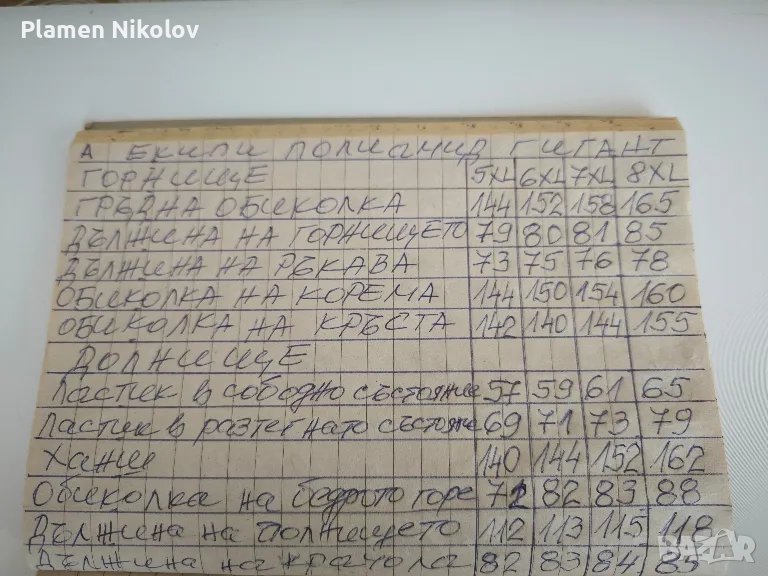 Plamen Nikolov
А ЕКИПИ ПОЛИАМИД ГИГАНТ
ГОРНИЩЕ 5XL 6XL 7XL 8XL
ГРЪДНА ОБИКОЛКА 144 152 158 165
ДЪЛЖИНА НА ГОРНИЩЕТО 79 80 81 85
ДЪЛЖИНА НА РЪКАВА 73 75 76 78
ОБИКОЛКА НА КОРЕМА 144 150 154 160
ОБИКОЛКА НА КРЪСТА 142 140 144 155
ДОЛНИЩЕ
Ластик в сободно състояние 57 59 61 65
Ластик в разтегнато състояние 69 71 73 79
Ханш 140 144 152 162
Обиколка на бедрото горе 82 83 88
Дължина на долнището 112 113 115 118
Дължина на крачола 82 83 84 85
BAZAR